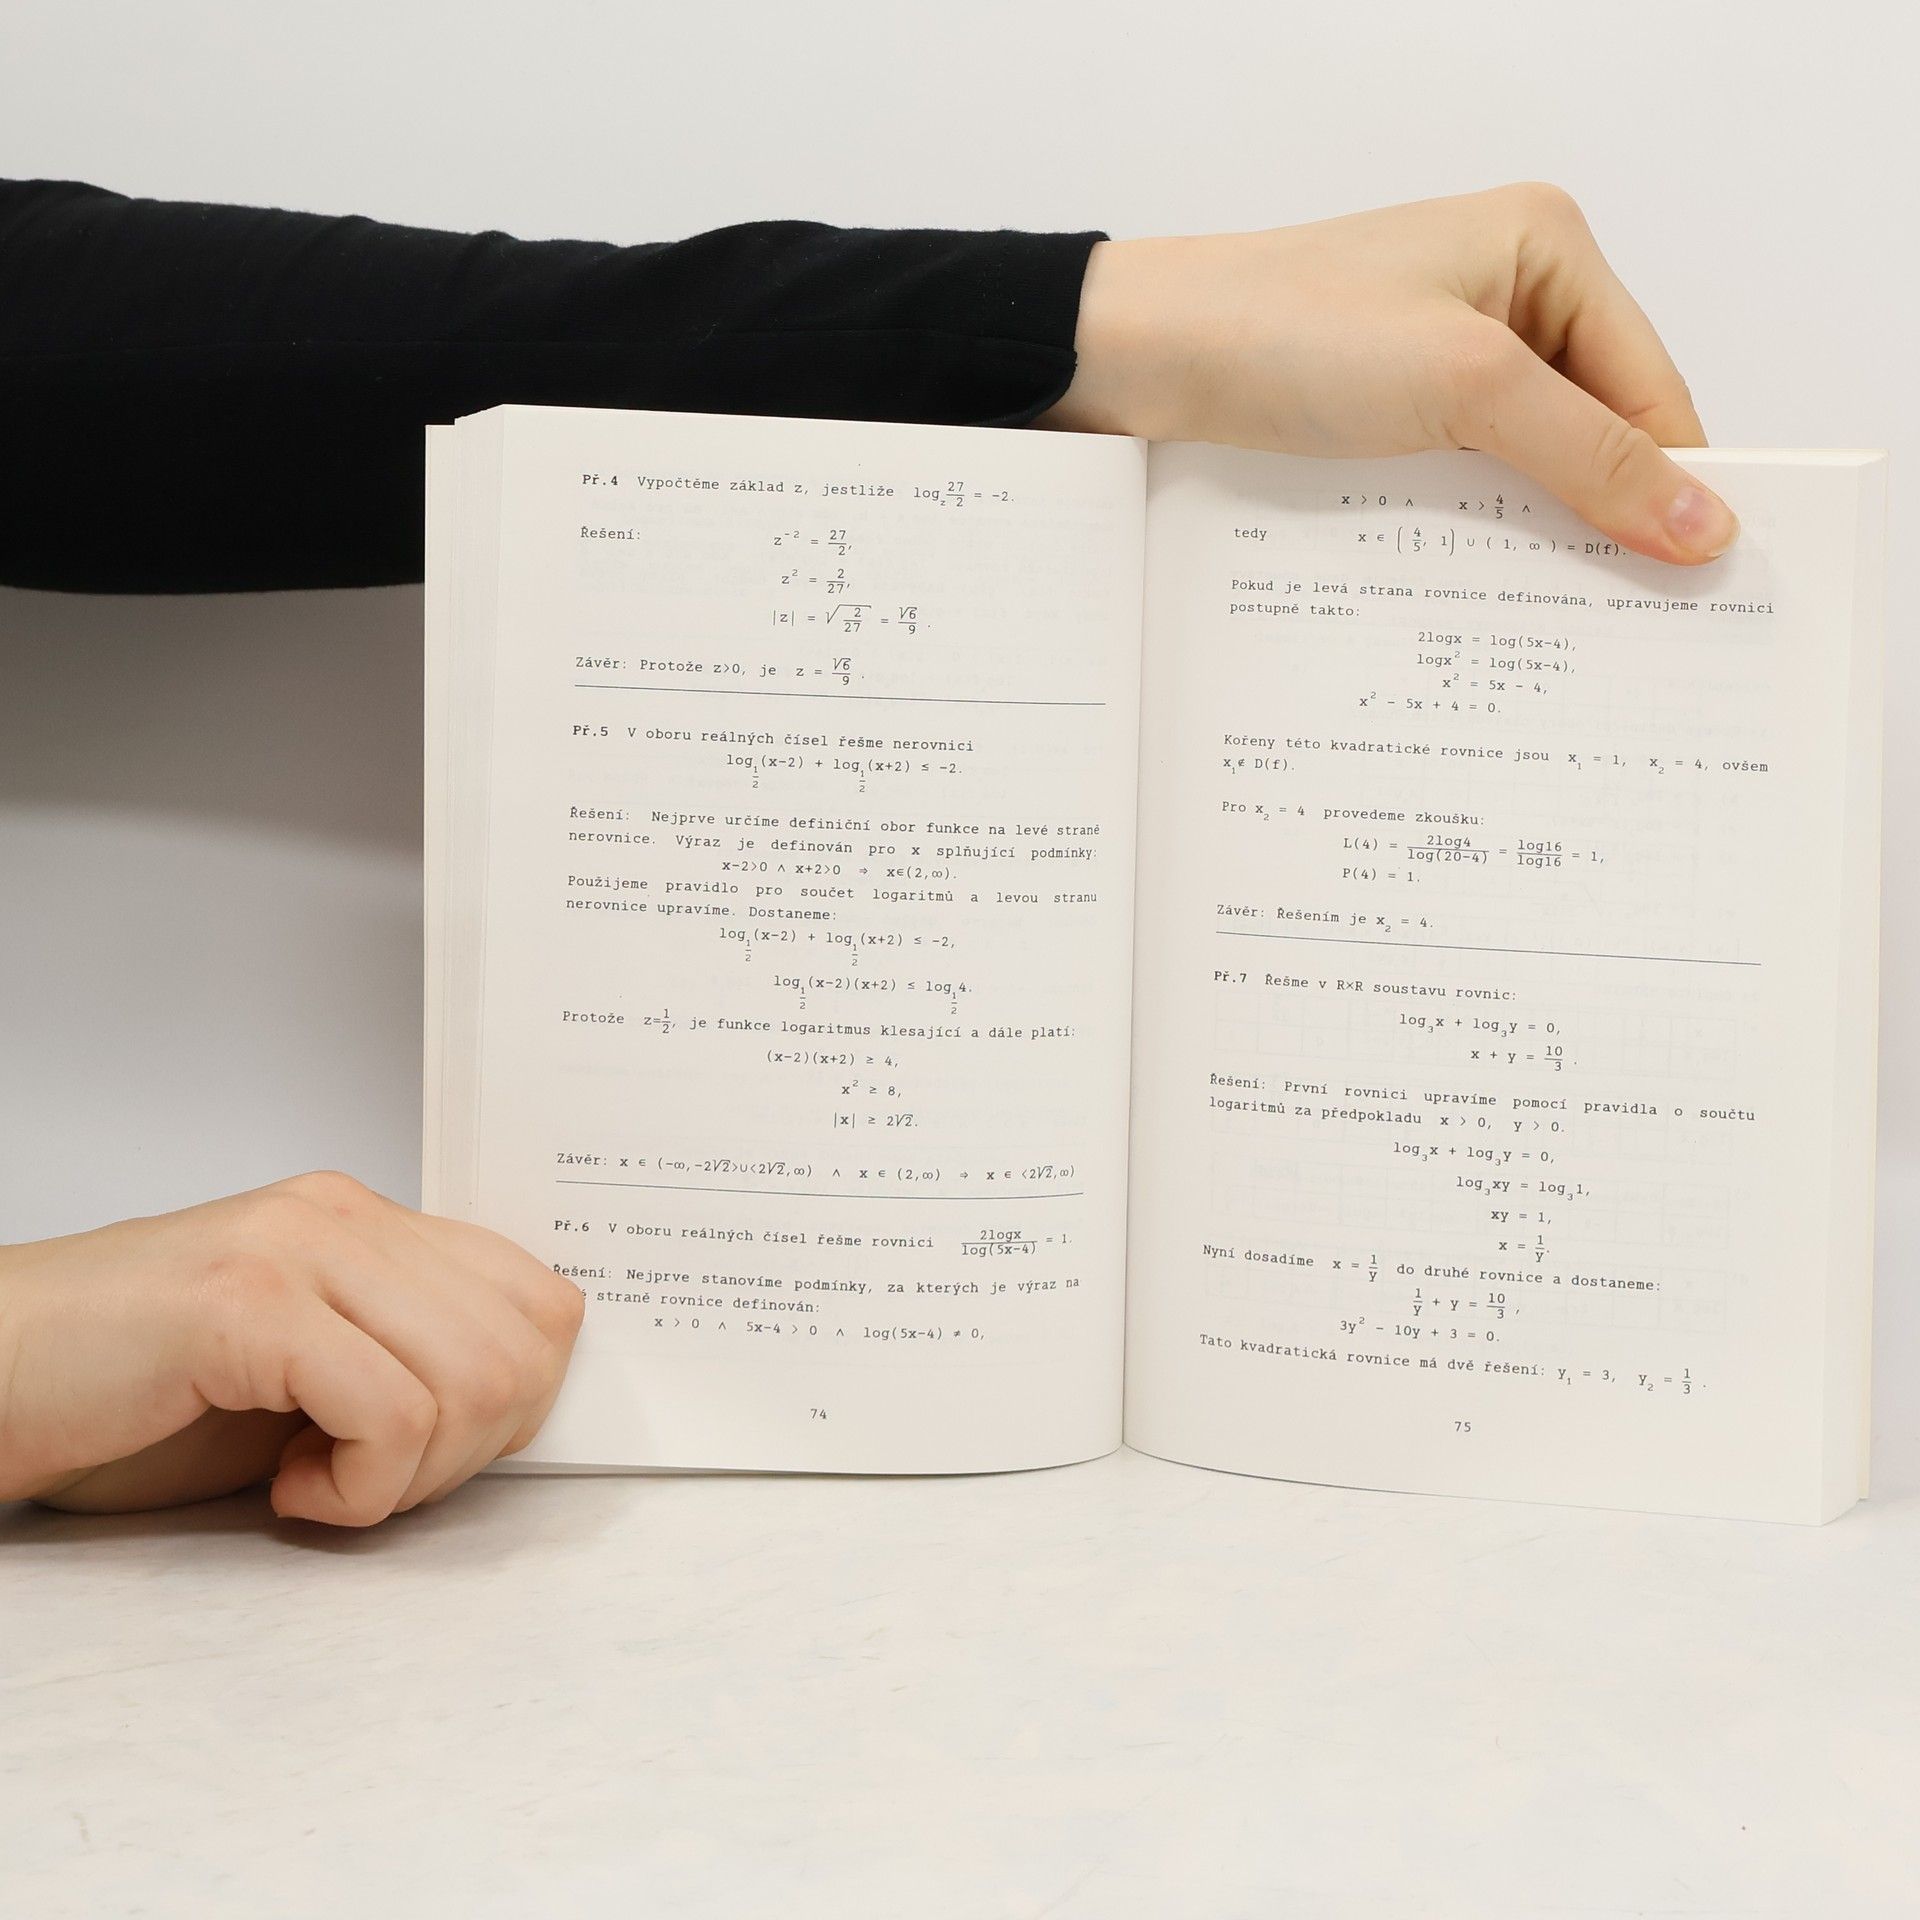 Př.4 Vypočtěme základ z, jestliže log_z 27/2 = -2.
Řešení: z^-2 = 27/2,
z^2 = 2/27,
|z| = √(2/27) = √6/9 .
Závěr: Protože z>0, je z = √6/9 .
Př.5 V oboru reálných čísel řešme nerovnici
log_1/2(x-2) + log_1/2(x+2) ≤ -2.
Řešení: Nejprve určíme definiční obor funkce na levé straně
nerovnice. Výraz je definován pro x splňující podmínky:
x-2>0 ∧ x+2>0 ⇒ x∈(2,∞).
Použijeme pravidlo pro součet logaritmů a levou stranu
nerovnice upravíme. Dostaneme:
log_1/2(x-2) + log_1/2(x+2) ≤ -2,
log_1/2(x-2)(x+2) ≤ log_1/2 4.
Protože z=1/2, je funkce logaritmus klesající a dále platí:
(x-2)(x+2) ≥ 4,
x^2 ≥ 8,
|x| ≥ 2√2.
Závěr: x ∈ (-∞,-2√2>∪<2√2,∞) ∧ x ∈ (2,∞) ⇒ x ∈ <2√2,∞)
Př.6 V oboru reálných čísel řešme rovnici 2logx/log(5x-4) = 1.
Řešení: Nejprve stanovíme podmínky, za kterých je výraz na
straně rovnice definován:
x > 0 ∧ 5x-4 > 0 ∧ log(5x-4) ≠ 0,
74
x > 0 ∧ x > 4/5 ∧
tedy x ∈ (4/5, 1) ∪ ( 1, ∞ ) = D(f).
Pokud je levá strana rovnice definována, upravujeme rovnici
postupně takto:
2logx = log(5x-4),
logx^2 = log(5x-4),
x^2 = 5x - 4,
x^2 - 5x + 4 = 0.
Kořeny této kvadratické rovnice jsou x_1 = 1, x_2 = 4, ovšem
x_1∉ D(f).
Pro x_2 = 4 provedeme zkoušku:
L(4) = 2log4/log(20-4) = log16/log16 = 1,
P(4) = 1.
Závěr: Řešením je x_2 = 4.
Př.7 Řešme v R×R soustavu rovnic:
log_3x + log_3y = 0,
x + y = 10/3 .
Řešení: První rovnici upravíme pomocí pravidla o součtu
logaritmů za předpokladu x > 0, y > 0.
log_3x + log_3y = 0,
log_3xy = log_3 1,
xy = 1,
x = 1/y.
Nyní dosadíme x = 1/y do druhé rovnice a dostaneme:
1/y + y = 10/3 ,
3y^2 - 10y + 3 = 0.
Tato kvadratická rovnice má dvě řešení: y_1 = 3, y_2 = 1/3 .
75